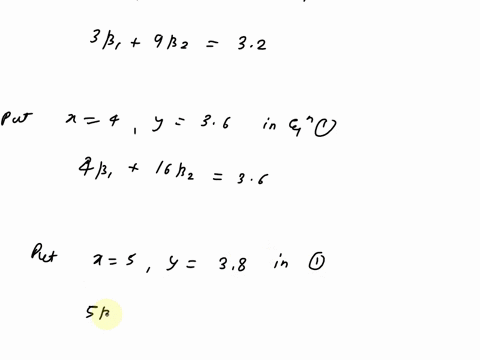 3β₁ + 9β₂ = 3.2
Put x = 4 , y = 3.6 in eqⁿ ①
4β₁ + 16β₂ = 3.6
Put x = 5 , y = 3.8 in ①
5β